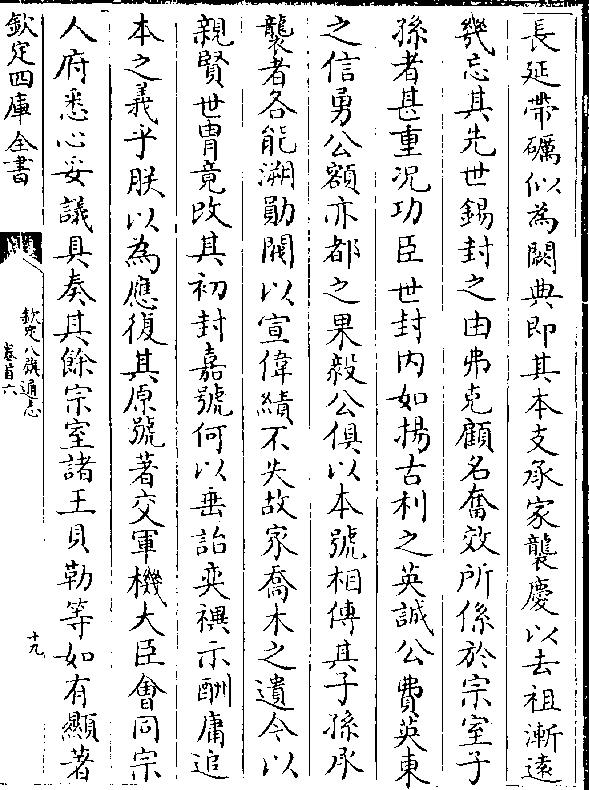 長延帶礪似為闕典即其本支承家襲慶以去祖漸遠
幾忘其先世錫封之由弗克顧名奮效所係於宗室子
孫者甚重况功臣世封内如揚古利之英誠公費英東
之信勇公額亦都之果毅公俱以本號相傳其子孫承
襲者各能溯勛閥以宣偉績不失故家喬木之遺今以
親賢世胄竟改其初封嘉號何以垂詒奕禩示酬庸追
本之義乎朕以為應復其原號著交軍機大臣會同宗
人府悉心妥議具奏其餘宗室諸王貝勒等如有顯著
欽定四庫全書
欽定八旗通志
卷首六
十九